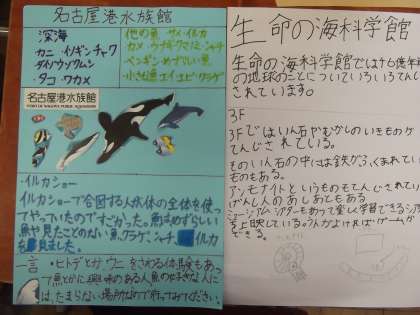 名古屋港水族館
・深海
カニ イソギンチャク
ダイオウグソクムシ
・タコ ワカメ
他の魚 サメ イルカ
カメ ウナギ クマノミ シャチ
ペンギン めずらしい魚
小さな魚 エイ エビ クラゲ
名古屋港水族館
PORT OF NAGOYA PUBLIC AQUARIUM
・イルカショー
イルカショーで合図する人が体の全体を使っ
てやっていたのですごかった。魚はめずらしい
魚や見たことのない魚、クラゲ、シャチ、イルカ
を見ました。
一言 ・ヒトデとか ウニ をさわる体験もあっ
て魚とかに興味のある人、魚の好きな人に
は、たまらない場所なので行ってみてください。
生命の海科学館
生命の海科学館では46億年
の地球のことについていろいろてんじ
されています。
3F
3Fではいん石やむかしのいきものがて
んじされている。
ものいん石の中には鉄がふくまれてい
るものもある。
アンモナイトというものもてんじされてい
げんし人のあしあともある
ミュージアムシアターもあって楽しく学習できる
を上映している。